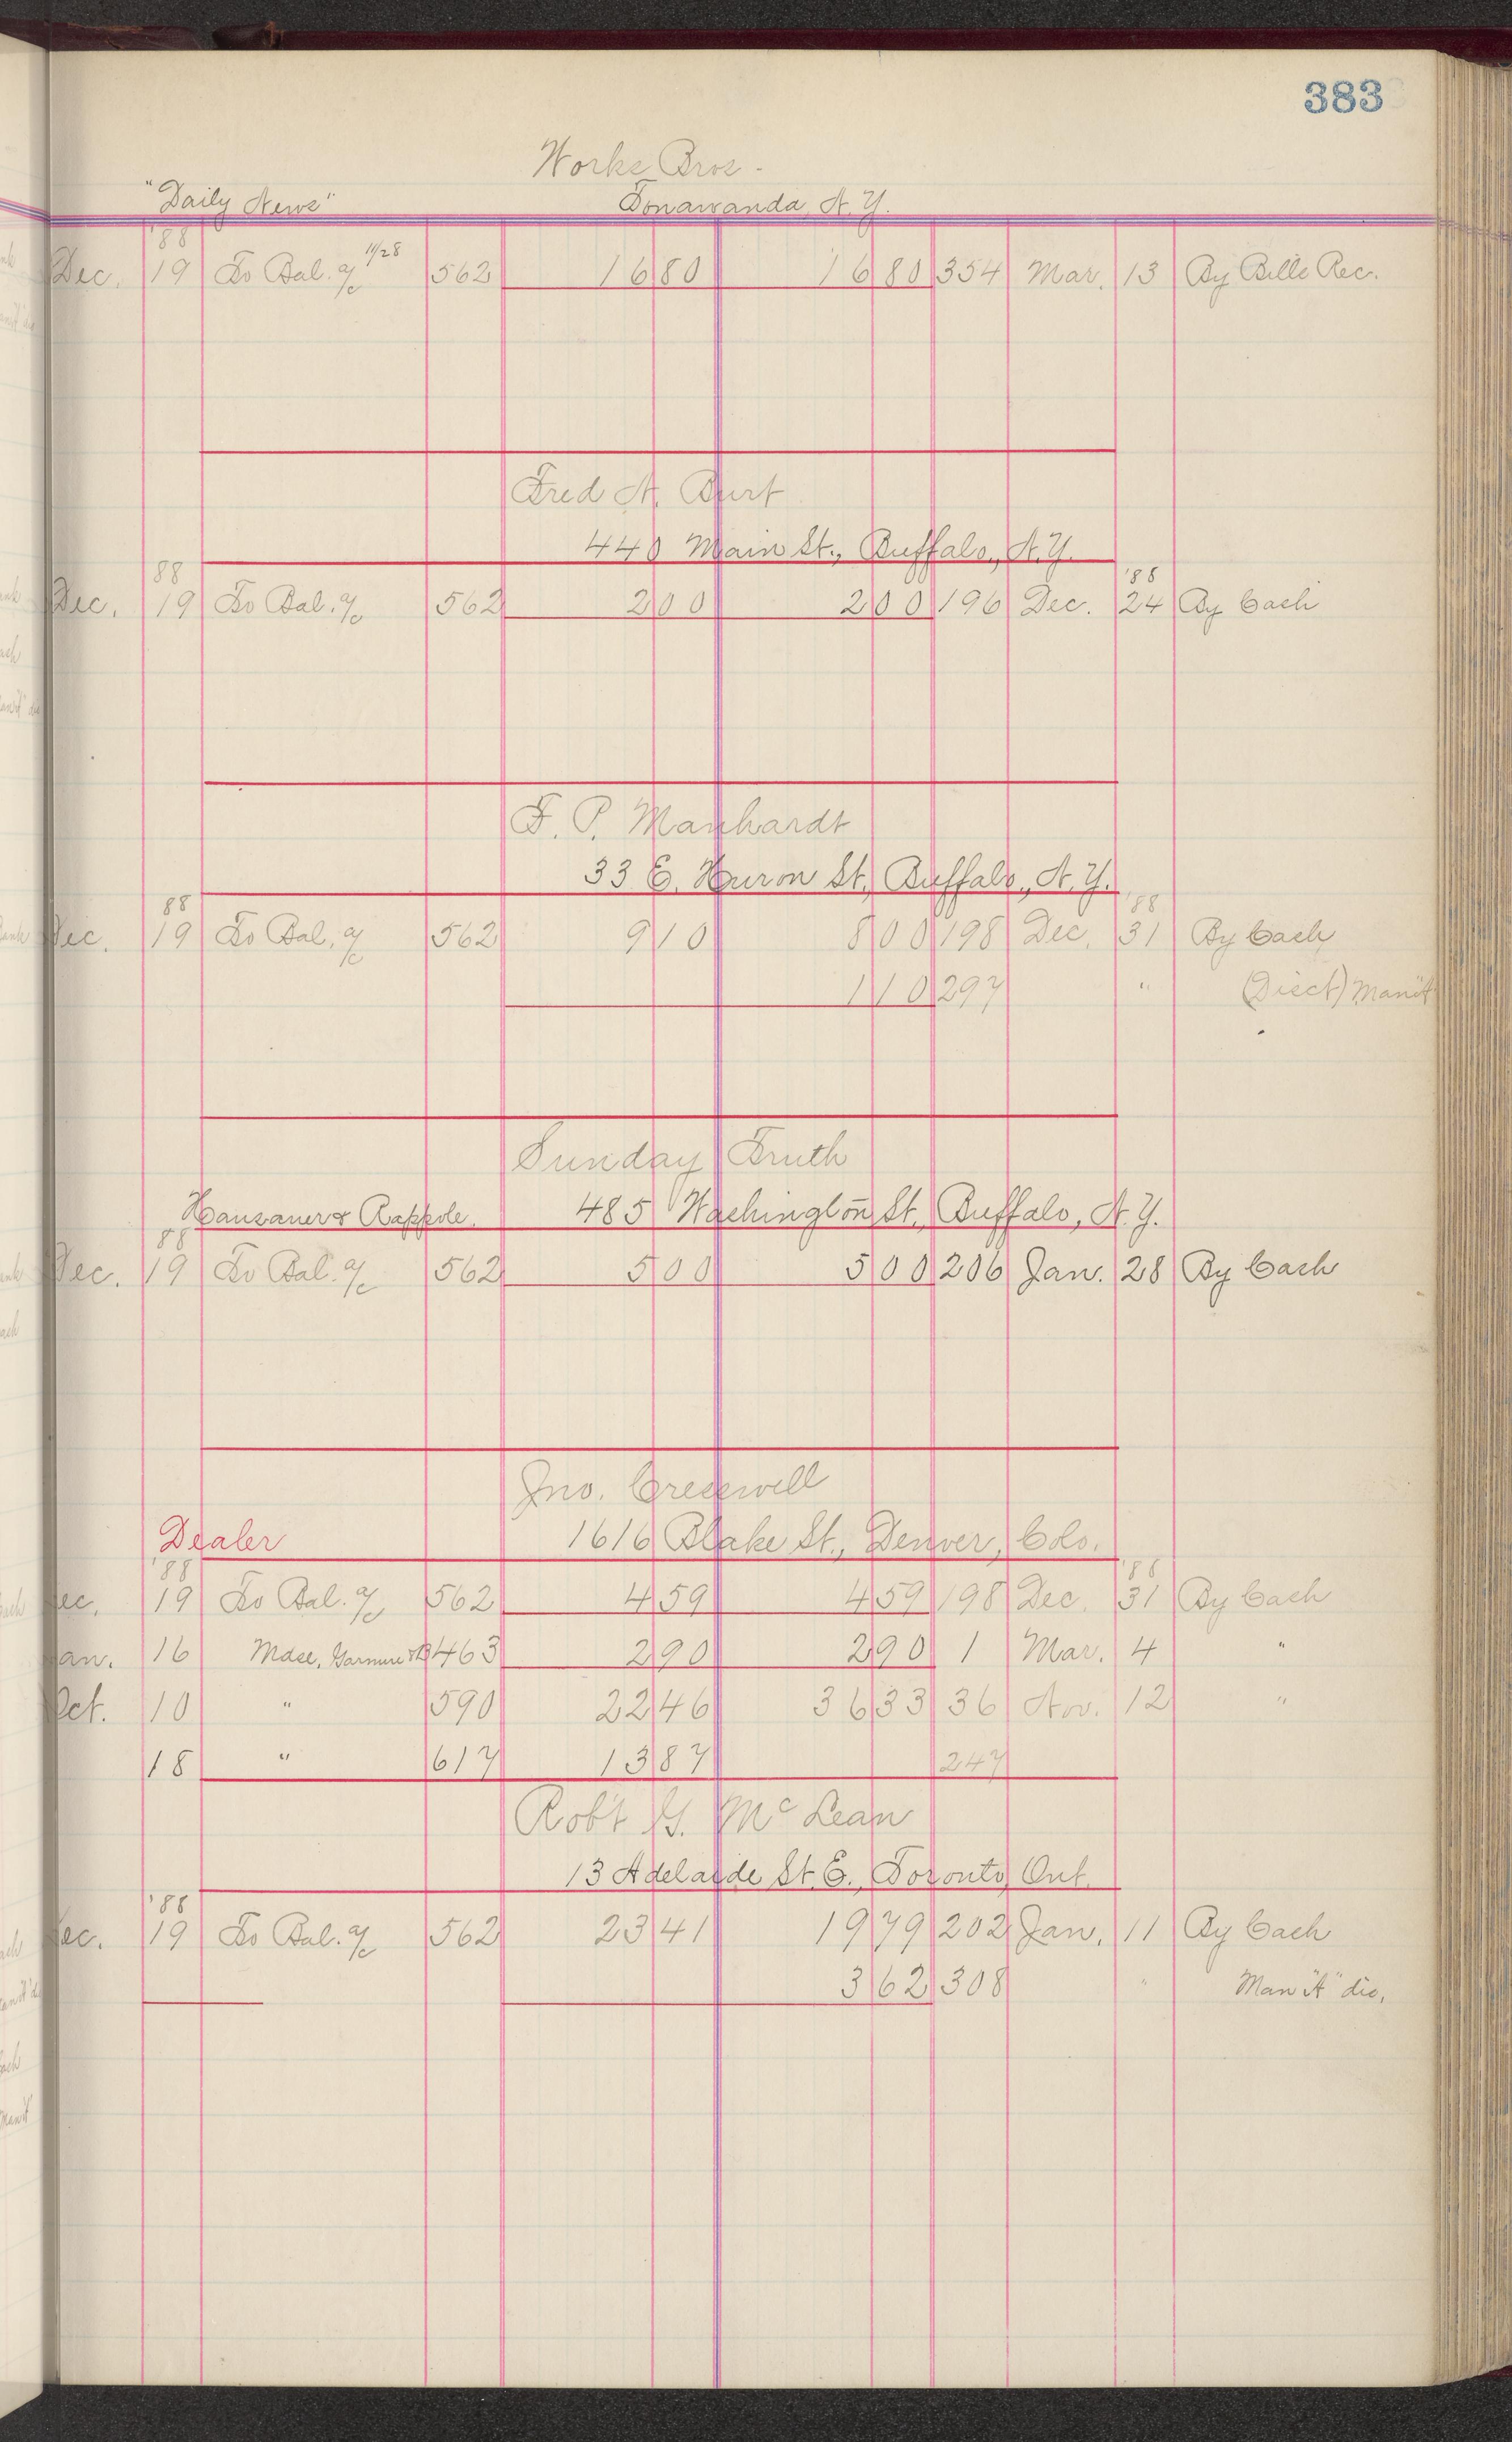 383
Works Bros.
"Daily News" Tonawanda, N.Y.
'88
Dec. 19 To Bal. a/c 11/28 562 16 80 16 80 354 Mar. 13 By Bills Rec.
Fred A. Burt
440 Main St., Buffalo, N.Y.
88 '88
Dec. 19 To Bal. a/c 562 2 00 2 00 196 Dec. 24 By Cash
F. P. Manhardt
33 E. Huron St., Buffalo, N.Y.
88 '88
Dec. 19 To Bal. a/c 562 9 10 8 00 198 Dec. 31 By Cash
1 10 297 " (Disct) Man "A"
Sunday Truth
& Rappole. 485 Washington St., Buffalo, N.Y.
88
Dec. 19 To Bal. a/c 562 5 00 5 00 206 Jan. 28 By Cash
Jno. Cresswell
Dealer 1616 Blake St., Denver, Colo.
'88 '88
ec. 19 To Bal. a/c 562 4 59 4 59 198 Dec. 31 By Cash
an. 16 Mdse, 463 2 90 2 90 1 Mar. 4 "
Oct. 10 " 590 22 46 36 33 36 Nov. 12 "
18 " 617 13 87 247
Rob't G. McLean
13 Adelaide St. E., Toronto, Ont.
'88
ec. 19 To Bal. a/c 562 23 41 19 79 202 Jan. 11 By Cash
3 62 308 " Man "A" dis.